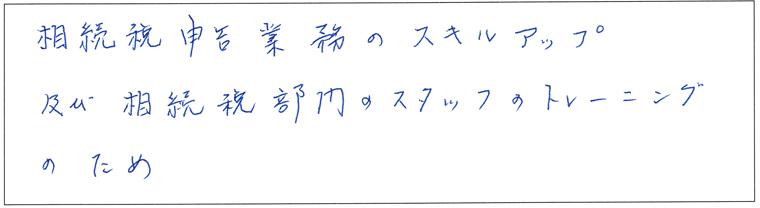 相続税申告業務のスキルアップ
及び相続税部門のスタッフのトレーニング
のため